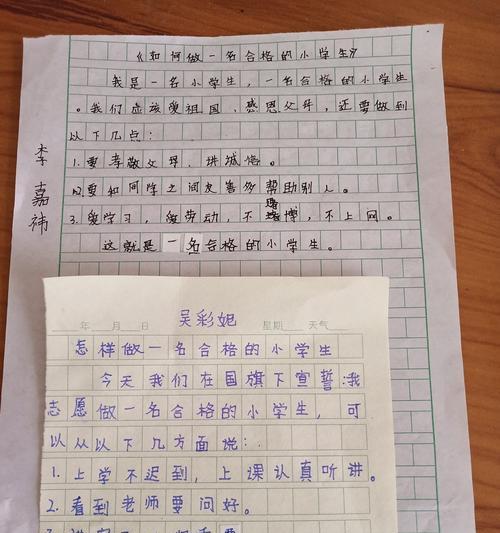 《如何做一名合格的小学生》
我是一名小学生，一名合格的小学生
。我们应该爱祖国、感恩父母，还要做到
以下几点：
1.要孝敬父母，讲诚信。
2.要和同学之间友善多帮助别人。
3.爱学习，爱劳动，不赌博，不上网。
这就是一名合格的小学生。
李嘉祎
吴彩妮
年 月 日 星期 天气
怎样做一名合格的小学生
今天我们在国旗下宣誓：我
志愿做一名合格的小学生，可
以从以下几方面说：
1.上学不迟到，上课认真听讲。
2.看到老师要问好。